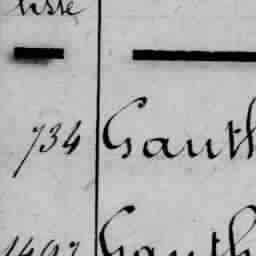 liste
734 Gauth
1497 Gauth